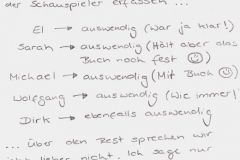 der Schauspieler erfassen ...
El → auswendig (War ja klar!)
Sarah → auswendig (Hält aber das
Buch noch fest ☺)
Michael → auswendig (Mit Buch ☺)
Wolfgang → auswendig (Wie immer!)
Dirk → ebenfalls auswendig
... über den Rest sprechen wir
lieber nicht. Ich sage nur